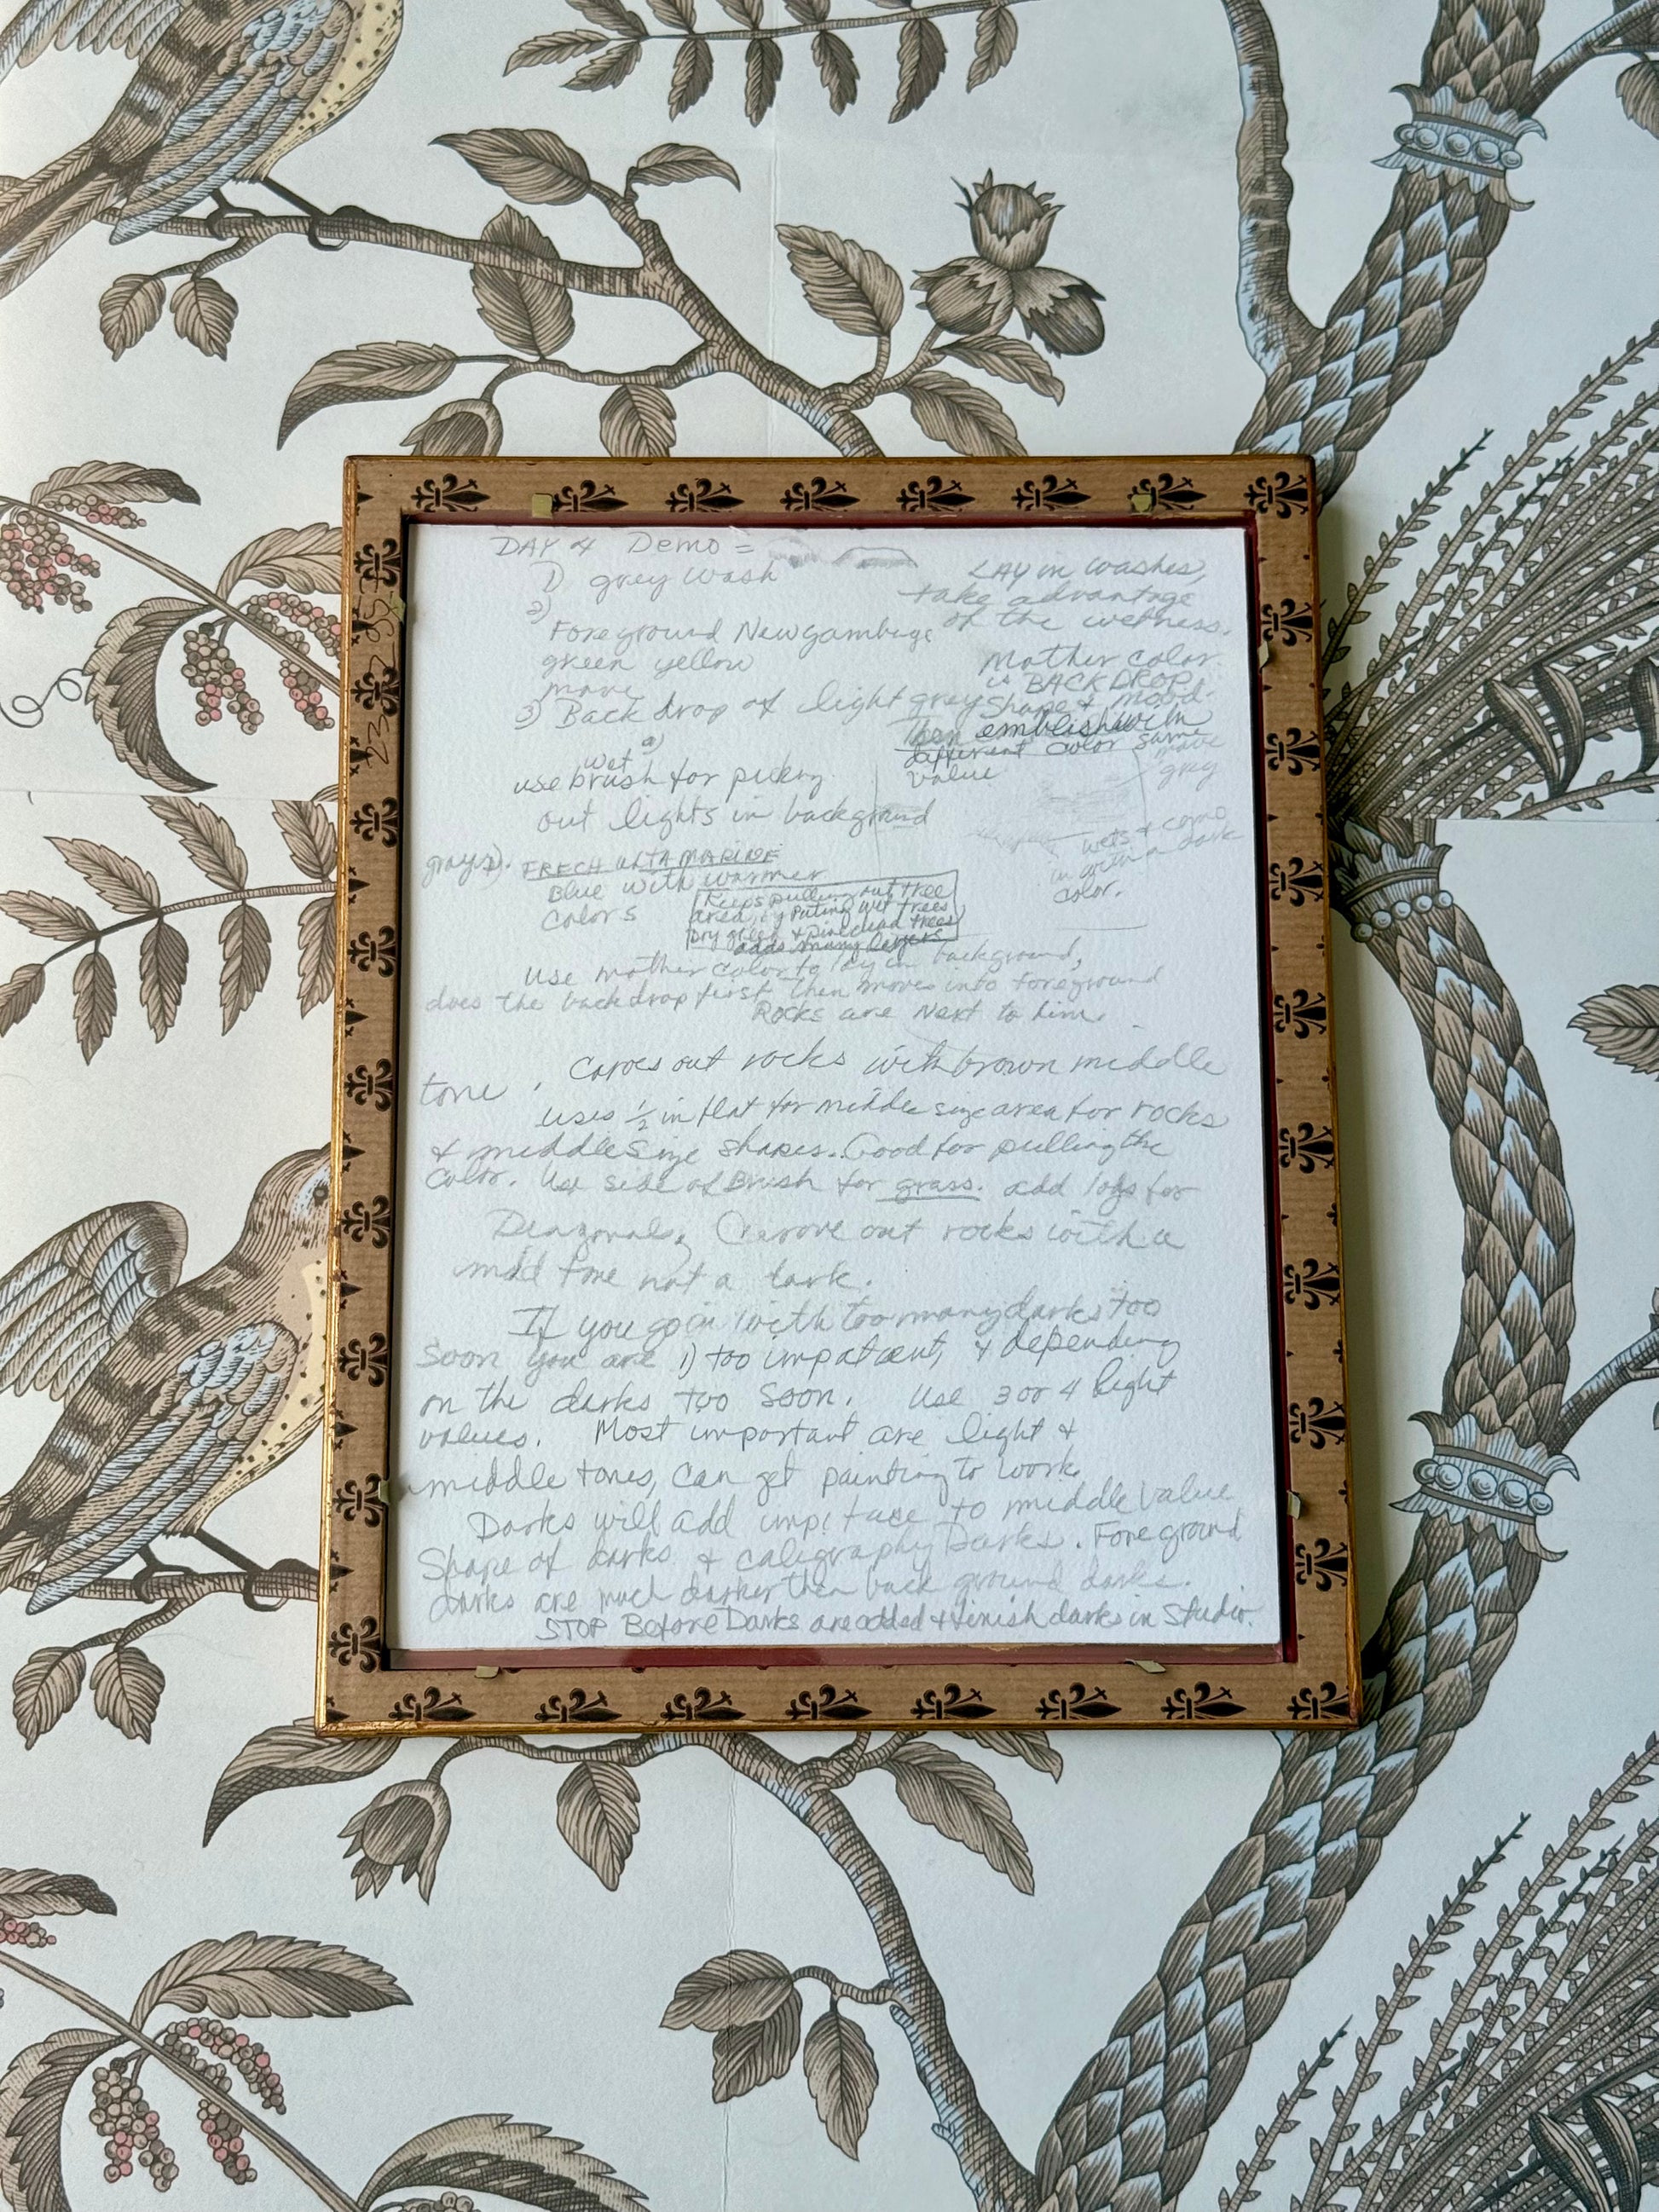 DAY 4 Demo =
1) grey wash
2)
Foreground New gamboge
green yellow
move
3) Back drop of light grey
LAY in washes,
take advantage
of the wetness.
Mother color
is BACKDROP
shape & mood.
Then embelish with
different color same
value
mauve
grey
a)
wet
use brush for picking
out lights in background
wets & como
in with a dark
color.
grays). FRECH ULTAMARINE
Blue with warmer
Colors
Keeps pulling out tree
area, by puting wet trees
Dry green & pine dead trees
adds many layers
Use mother color to lay in background,
does the backdrop first then moves into foreground
Rocks are Next to him.
Carves out rocks with brown middle
tone.
uses 1/2 in flat for middle size area for rocks
& middle size shapes. Good for pulling the
Color. Use side of Brush for grass. add logs for
Diagonals, Carove out rocks with a
mid tone not a dark.
If you go in with too many darks too
Soon you are 1) too impatient, & depending
on the darks too soon. Use 3 or 4 light
values. Most important are light &
middle tones, can get painting to work.
Darks will add to middle value
Shape of darks & caligraphy Darks. Foreground
darks are much darker then back ground darks.
STOP Before Darks are added & finish darks in Studio.